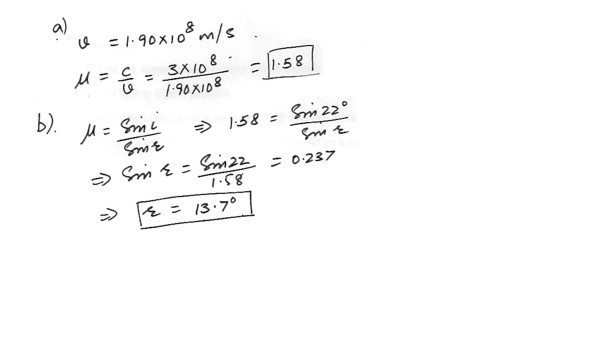 a) v = 1.90x10^8 m/s.
μ = c/v = 3x10^8/1.90x10^8 = 1.58
b). μ = Sin i/Sin r ⇒ 1.58 = Sin 22°/Sin r
⇒ Sin r = Sin 22/1.58 = 0.237
⇒ r = 13.7°